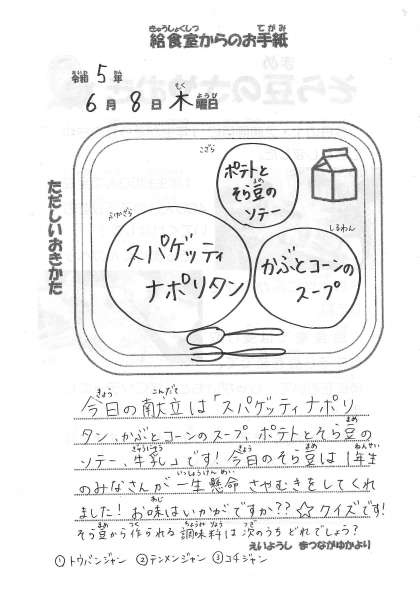 きゅうしょくしつ てがみ
給食室からのお手紙
令和 5 年
6 月 8 日 木 曜日
もく ようび
ただしいおきかた
こざら
ポテトと
そら豆の
ソテー
ふかざら
スパゲッティ
ナポリタン
しるわん
かぶとコーンの
スープ
きょう こんだて
今日の献立は「スパゲッティナポリ
タン、かぶとコーンのスープ、ポテトとそら豆の
ソテー、牛乳」です!今日のそら豆は1年生
のみなさんが一生懸命さやむきをしてくれ
ました!お味はいかがですか??☆クイズです!
そら豆から作られる調味料は次のうちどれでしょう?
えいようし まつながゆかより
①トウバンジャン ②テンメンジャン ③コチジャン